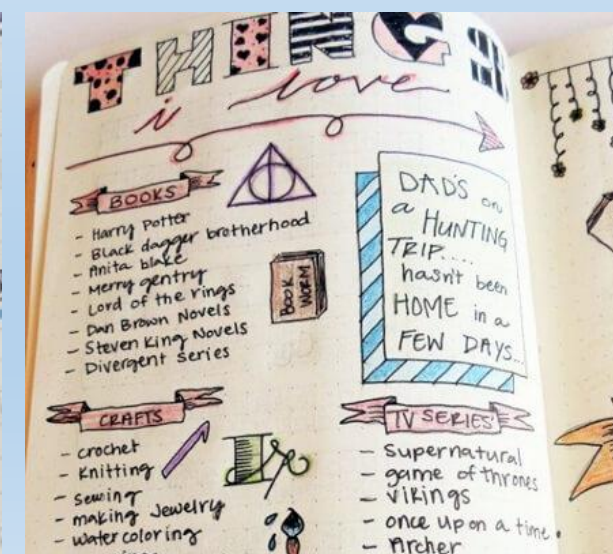 THINGS
i love
BOOKS
- Harry Potter
- Black dagger brotherhood
- Anita blake
- Merry gentry
- Lord of the rings
- Dan Brown Novels
- Steven King Novels
- Divergent series
BOOK
WORM
DAD'S on
a HUNTING
TRIP....
hasn't been
HOME in a
FEW DAYS...
CRAFTS
- crochet
- Knitting
- sewing
- making Jewelry
- watercoloring
TV SERIES
- Supernatural
- game of thrones
- vikings
- once upon a time
- Archer